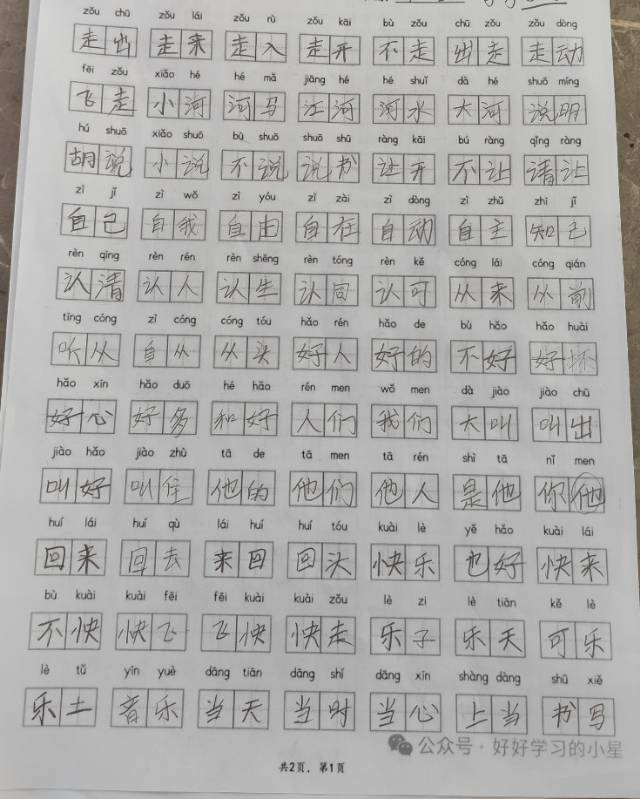 zǒu chū zǒu lái zǒu rù zǒu kāi bù zǒu chū zǒu zǒu dòng
走出 走来 走入 走开 不走 出走 走动
fēi zǒu xiǎo hé hé mǎ jiāng hé hé shuǐ dà hé shuō míng
飞走 小河 河马 江河 河水 大河 说明
hú shuō xiǎo shuō bù shuō shuō shū ràng kāi bú ràng qǐng ràng
胡说 小说 不说 说书 让开 不让 请让
zì jǐ zì wǒ zì yóu zì zài zì dòng zì zhǔ zhī jǐ
自己 自我 自由 自在 自动 自主 知己
rèn qīng rèn rén rèn shēng rèn tóng rèn kě cóng lái cóng qián
认清 认人 认生 认同 认可 从来 从前
tīng cóng zì cóng cóng tóu hǎo rén hǎo de bù hǎo hǎo huài
听从 自从 从头 好人 好的 不好 好坏
hǎo xīn hǎo duō hé hǎo rén men wǒ men dà jiào jiào chū
好心 好多 和好 人们 我们 大叫 叫出
jiào hǎo jiào zhù tā de tā men tā rén shì tā nǐ men
叫好 叫住 他的 他们 他人 是他 你他
huí lái huí qù lái huí huí tóu kuài lè yě hǎo kuài lái
回来 回去 来回 回头 快乐 也好 快来
bù kuài kuài fēi fēi kuài kuài zǒu lè zi lè tiān kě lè
不快 快飞 飞快 快走 乐子 乐天 可乐
lè tǔ yīn yuè dāng tiān dāng shí dāng xīn shàng dàng shū xiě
乐土 音乐 当天 当时 当心 上当 书写
公众号·好好学习的小星
共2页，第1页